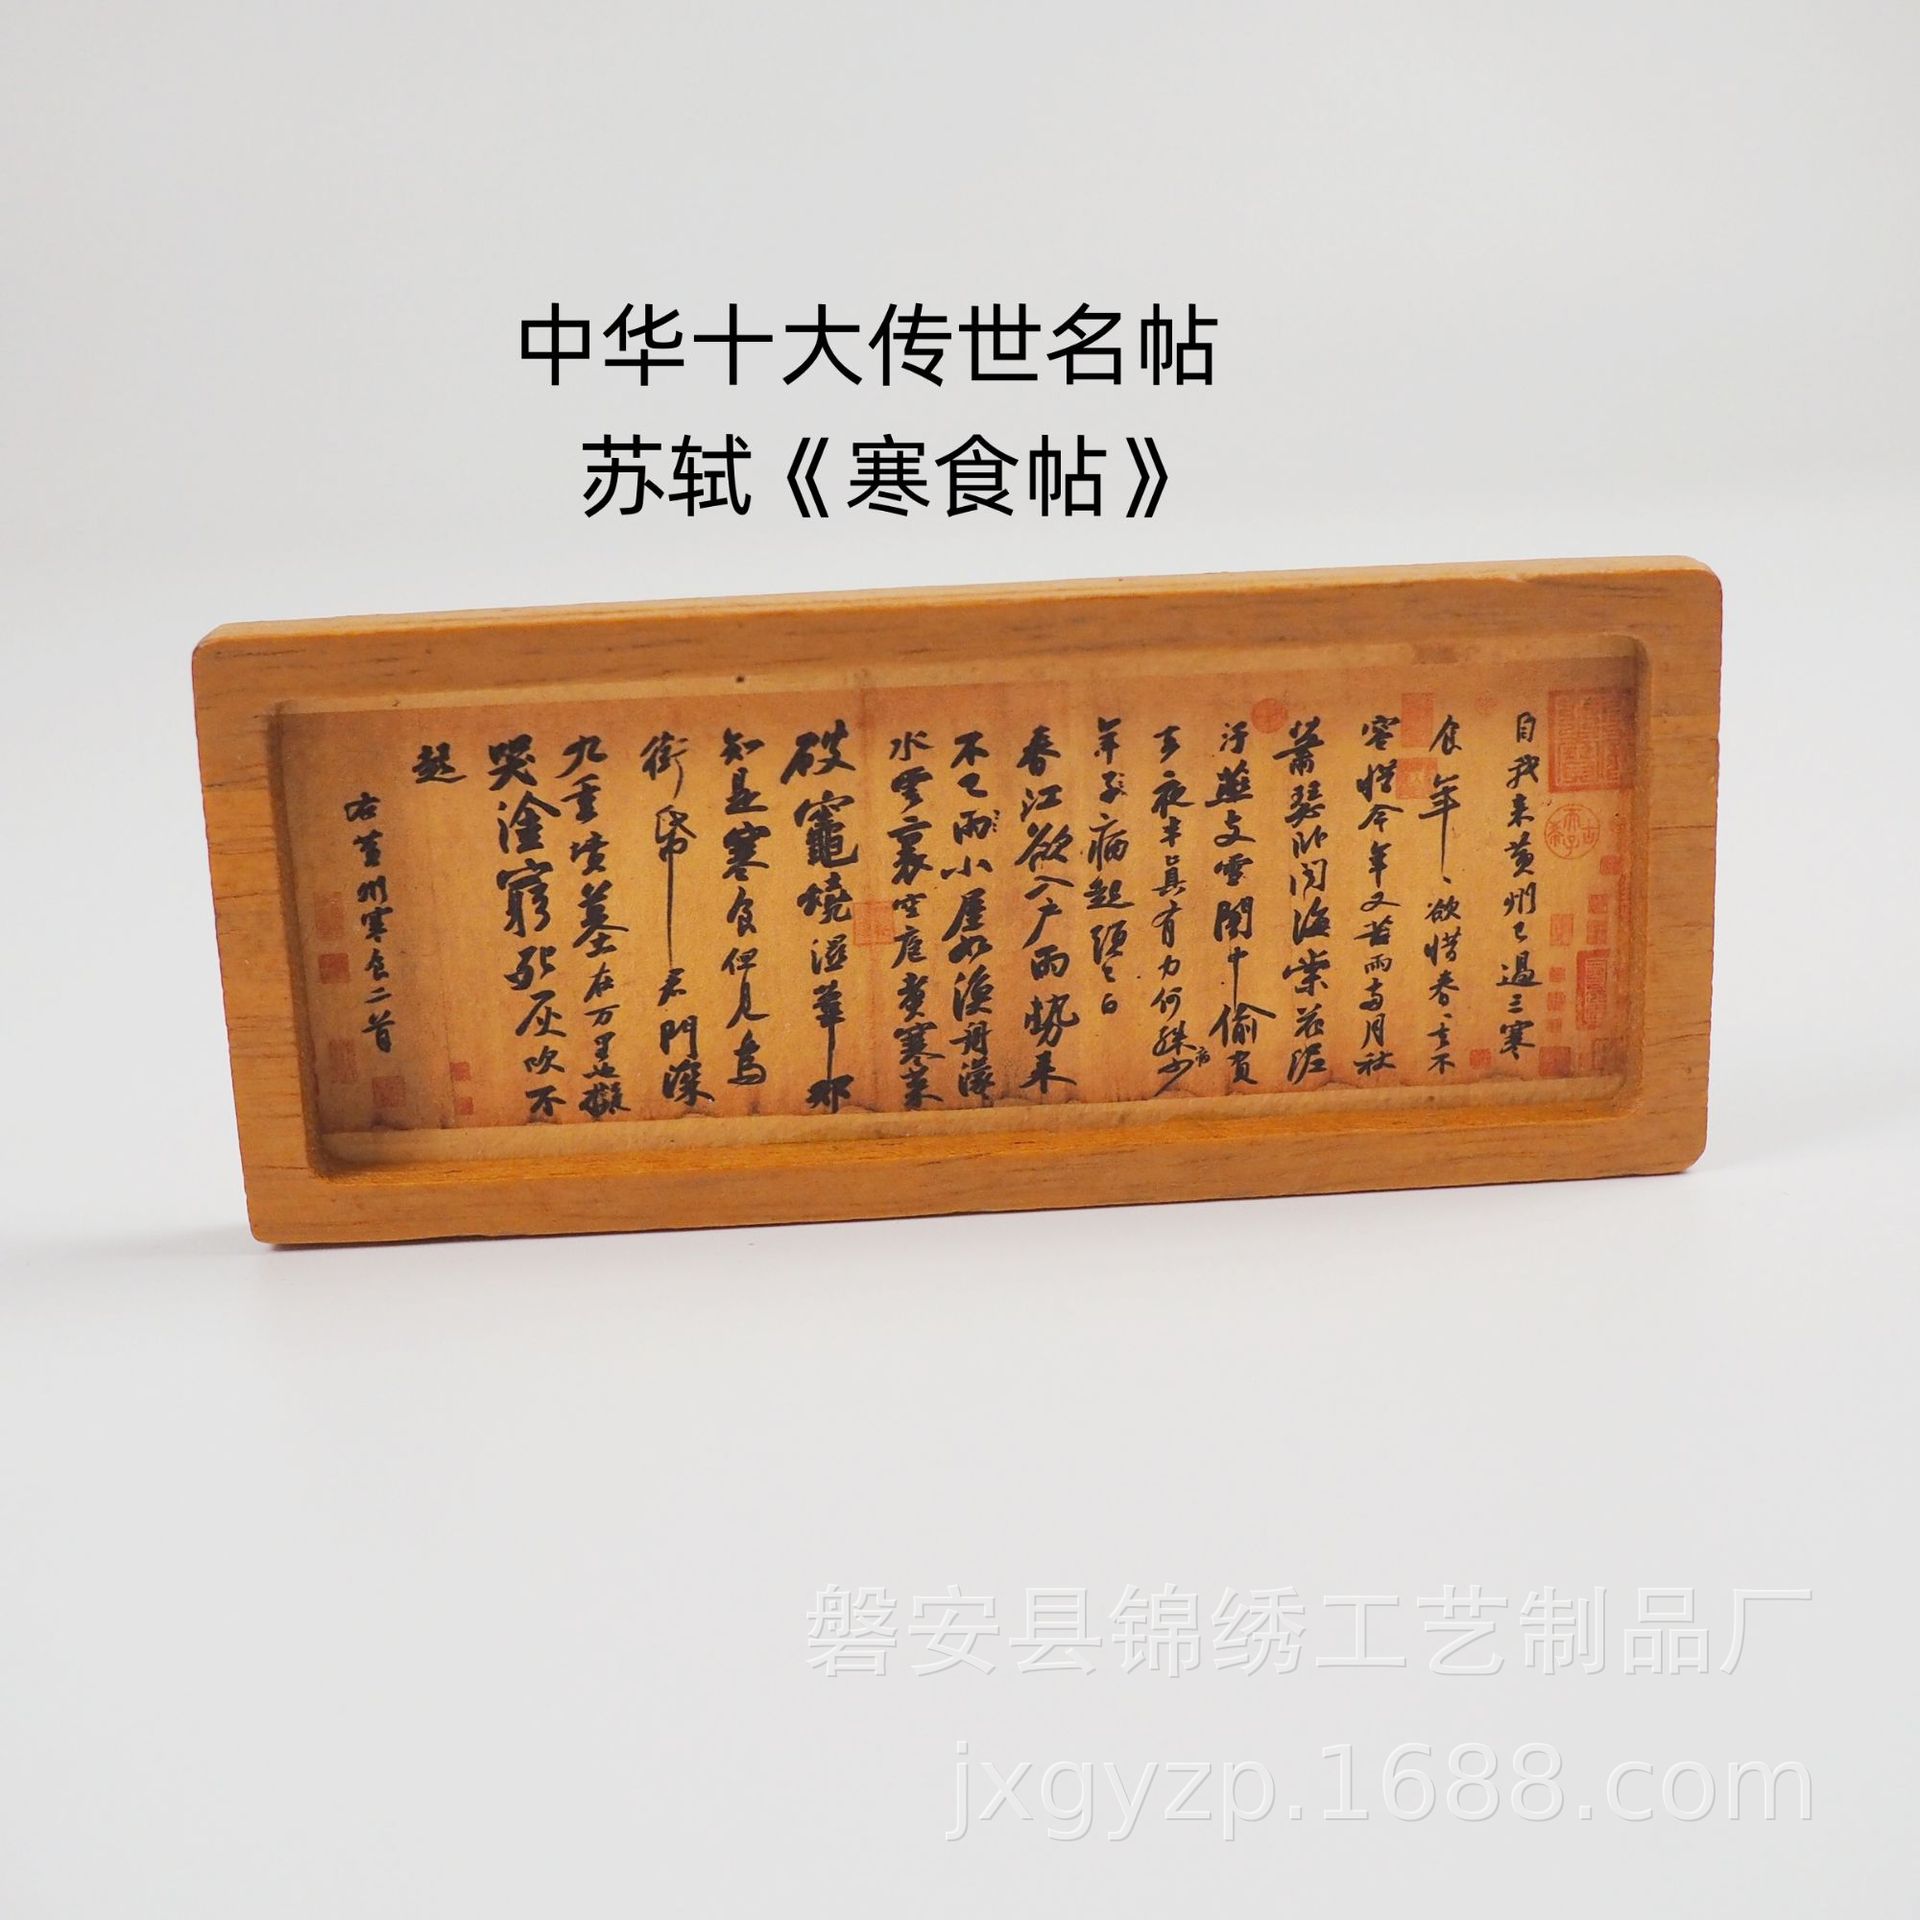 中华十大传世名帖
苏轼《寒食帖》
自我来黄州已過三寒
食年〻欲惜春〻去不
容惜今年又苦雨兩月秋
蕭瑟卧聞海棠花泥
汙燕支雪闇中偷負
去夜半真有力何殊少
年子病起頭已白
春江欲入户雨勢來
不已雨小屋如漁舟濛〻
水雲裏空庖煮寒菜
破竈燒濕葦那
知是寒食但見烏
銜帋君門深
九重墳墓在万里也擬
哭塗窮死灰吹不
起
右黄州寒食二首
磐安县锦绣工艺制品厂
jxgyzp.1688.com